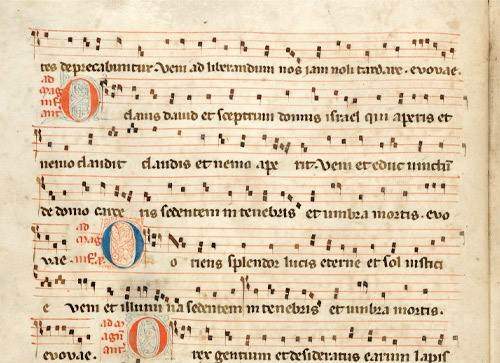 tes deprecabuntur. Veni ad liberandum nos iam noli tardare. evovae.
ad mag inf ant O clavis david et sceptrum domus israel qui aperis et
nemo claudit claudis et nemo ape rit. Veni et educ vinctū
de domo carce ris sedentem in tenebris et umbra mortis. evo
vae. ad mag O o riens splendor lucis eterne et sol iustici
e veni et illumi na sedentem in tenebris et umbra mortis.
evovae. ant O rex gentium et desideratus earum lapis